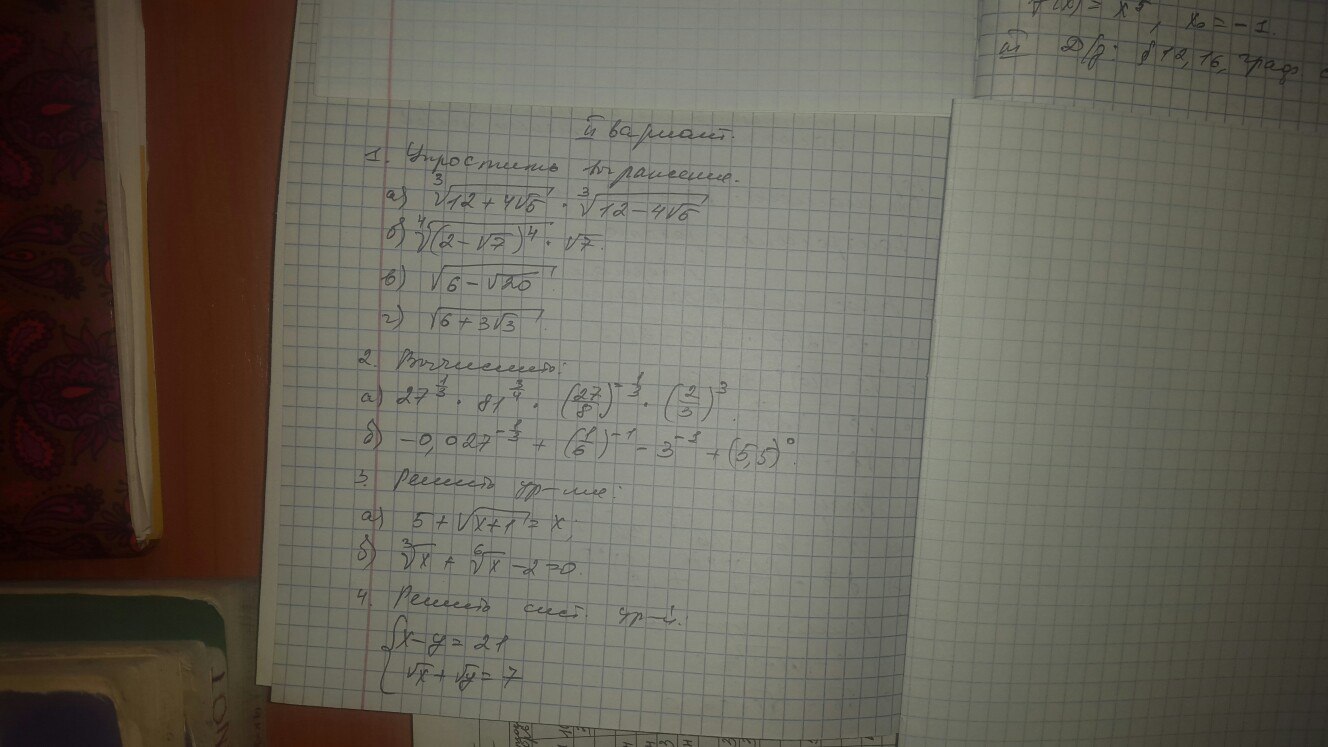 f(x) = x⁵, x₀ = -1.
Д/з: § 12, 16, граф
II вариант.
1. Упростить выражение.
а) ∛(12+4√5) · ∛(12-4√5)
б) ∜((2-√7)⁴) · √7.
в) √(6-√20)
г) √(6+3√3).
2. Вычислить:
а) 27^(1/3) · 81^(3/4) · (27/8)^(-1/3) · (2/3)³.
б) -0,027^(-1/3) + (1/6)^(-1) - 3^(-1) + (5,5)⁰.
3. Решить ур-ие:
а) 5+√(x+1) = x;
б) ∛x + ⁶√x -2=0.
4. Решить сист. ур-й:
{ x-y = 21
√x+√y = 7